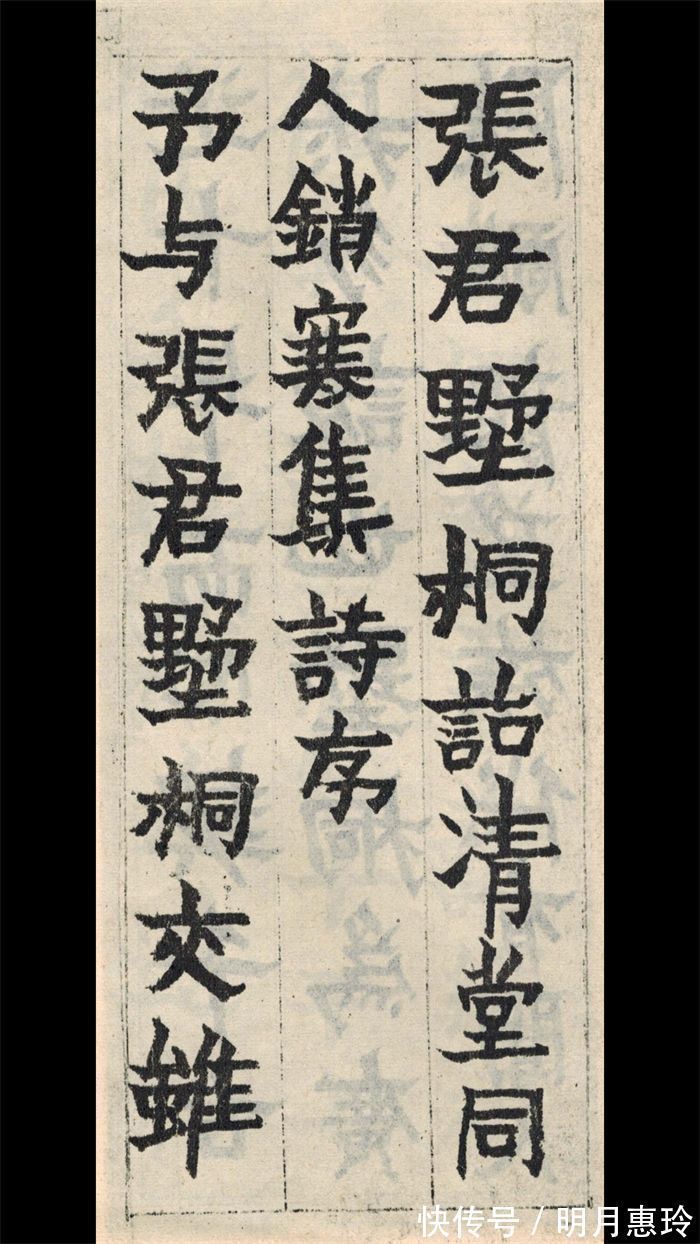 張君墅桐詒清堂同
人銷寒集詩序
予与張君墅桐交雖
快传号/明月惠玲